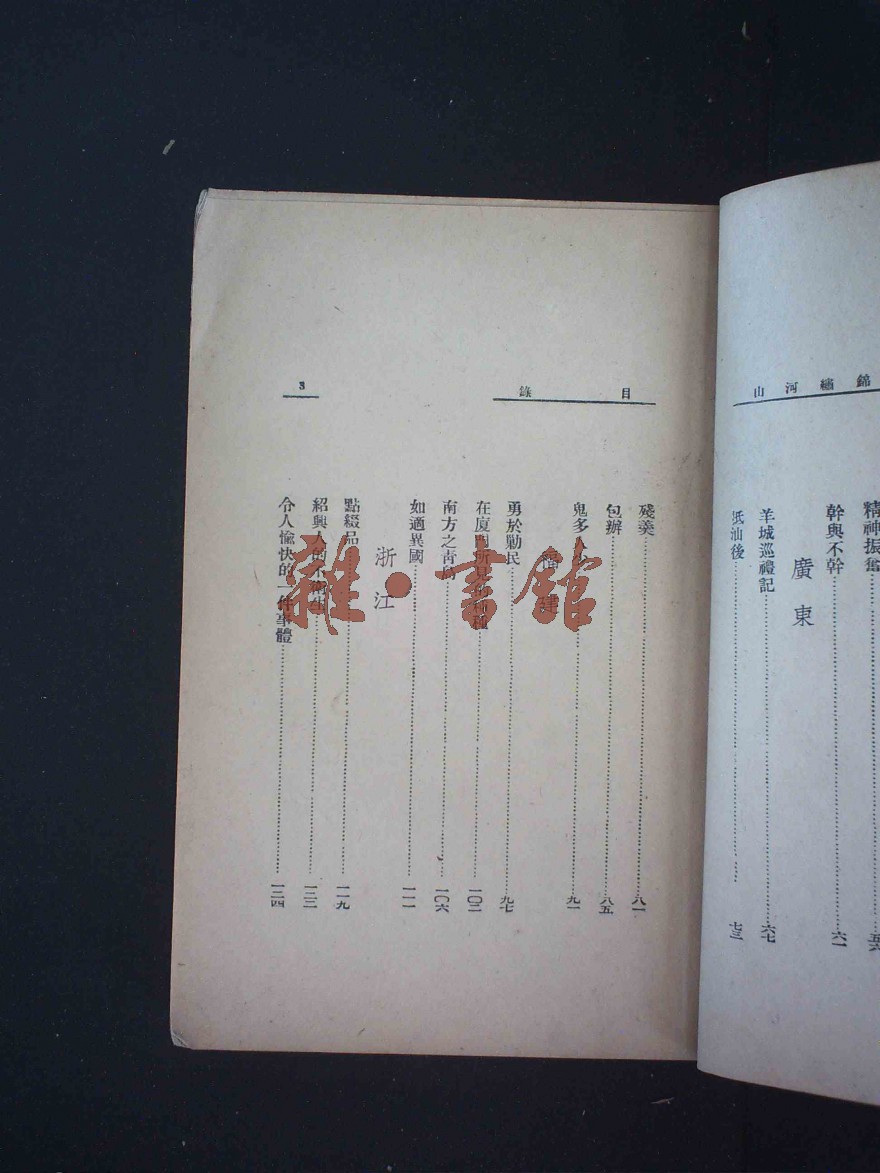 錦繡河山
精神振奮……五六
幹與不幹……六一
廣東
羊城巡禮記……六七
抵汕後……七三
目錄
3
殘羹……八一
包辦……八五
鬼多人……九一
福建
勇於勦民……九七
在廈門所見……種……一〇二
南方之青島……一〇六
如適異國……一一一
浙江
點綴品……一一九
紹興人的不衛生……一二二
令人愉快的一件事體……一二四
雜·書館